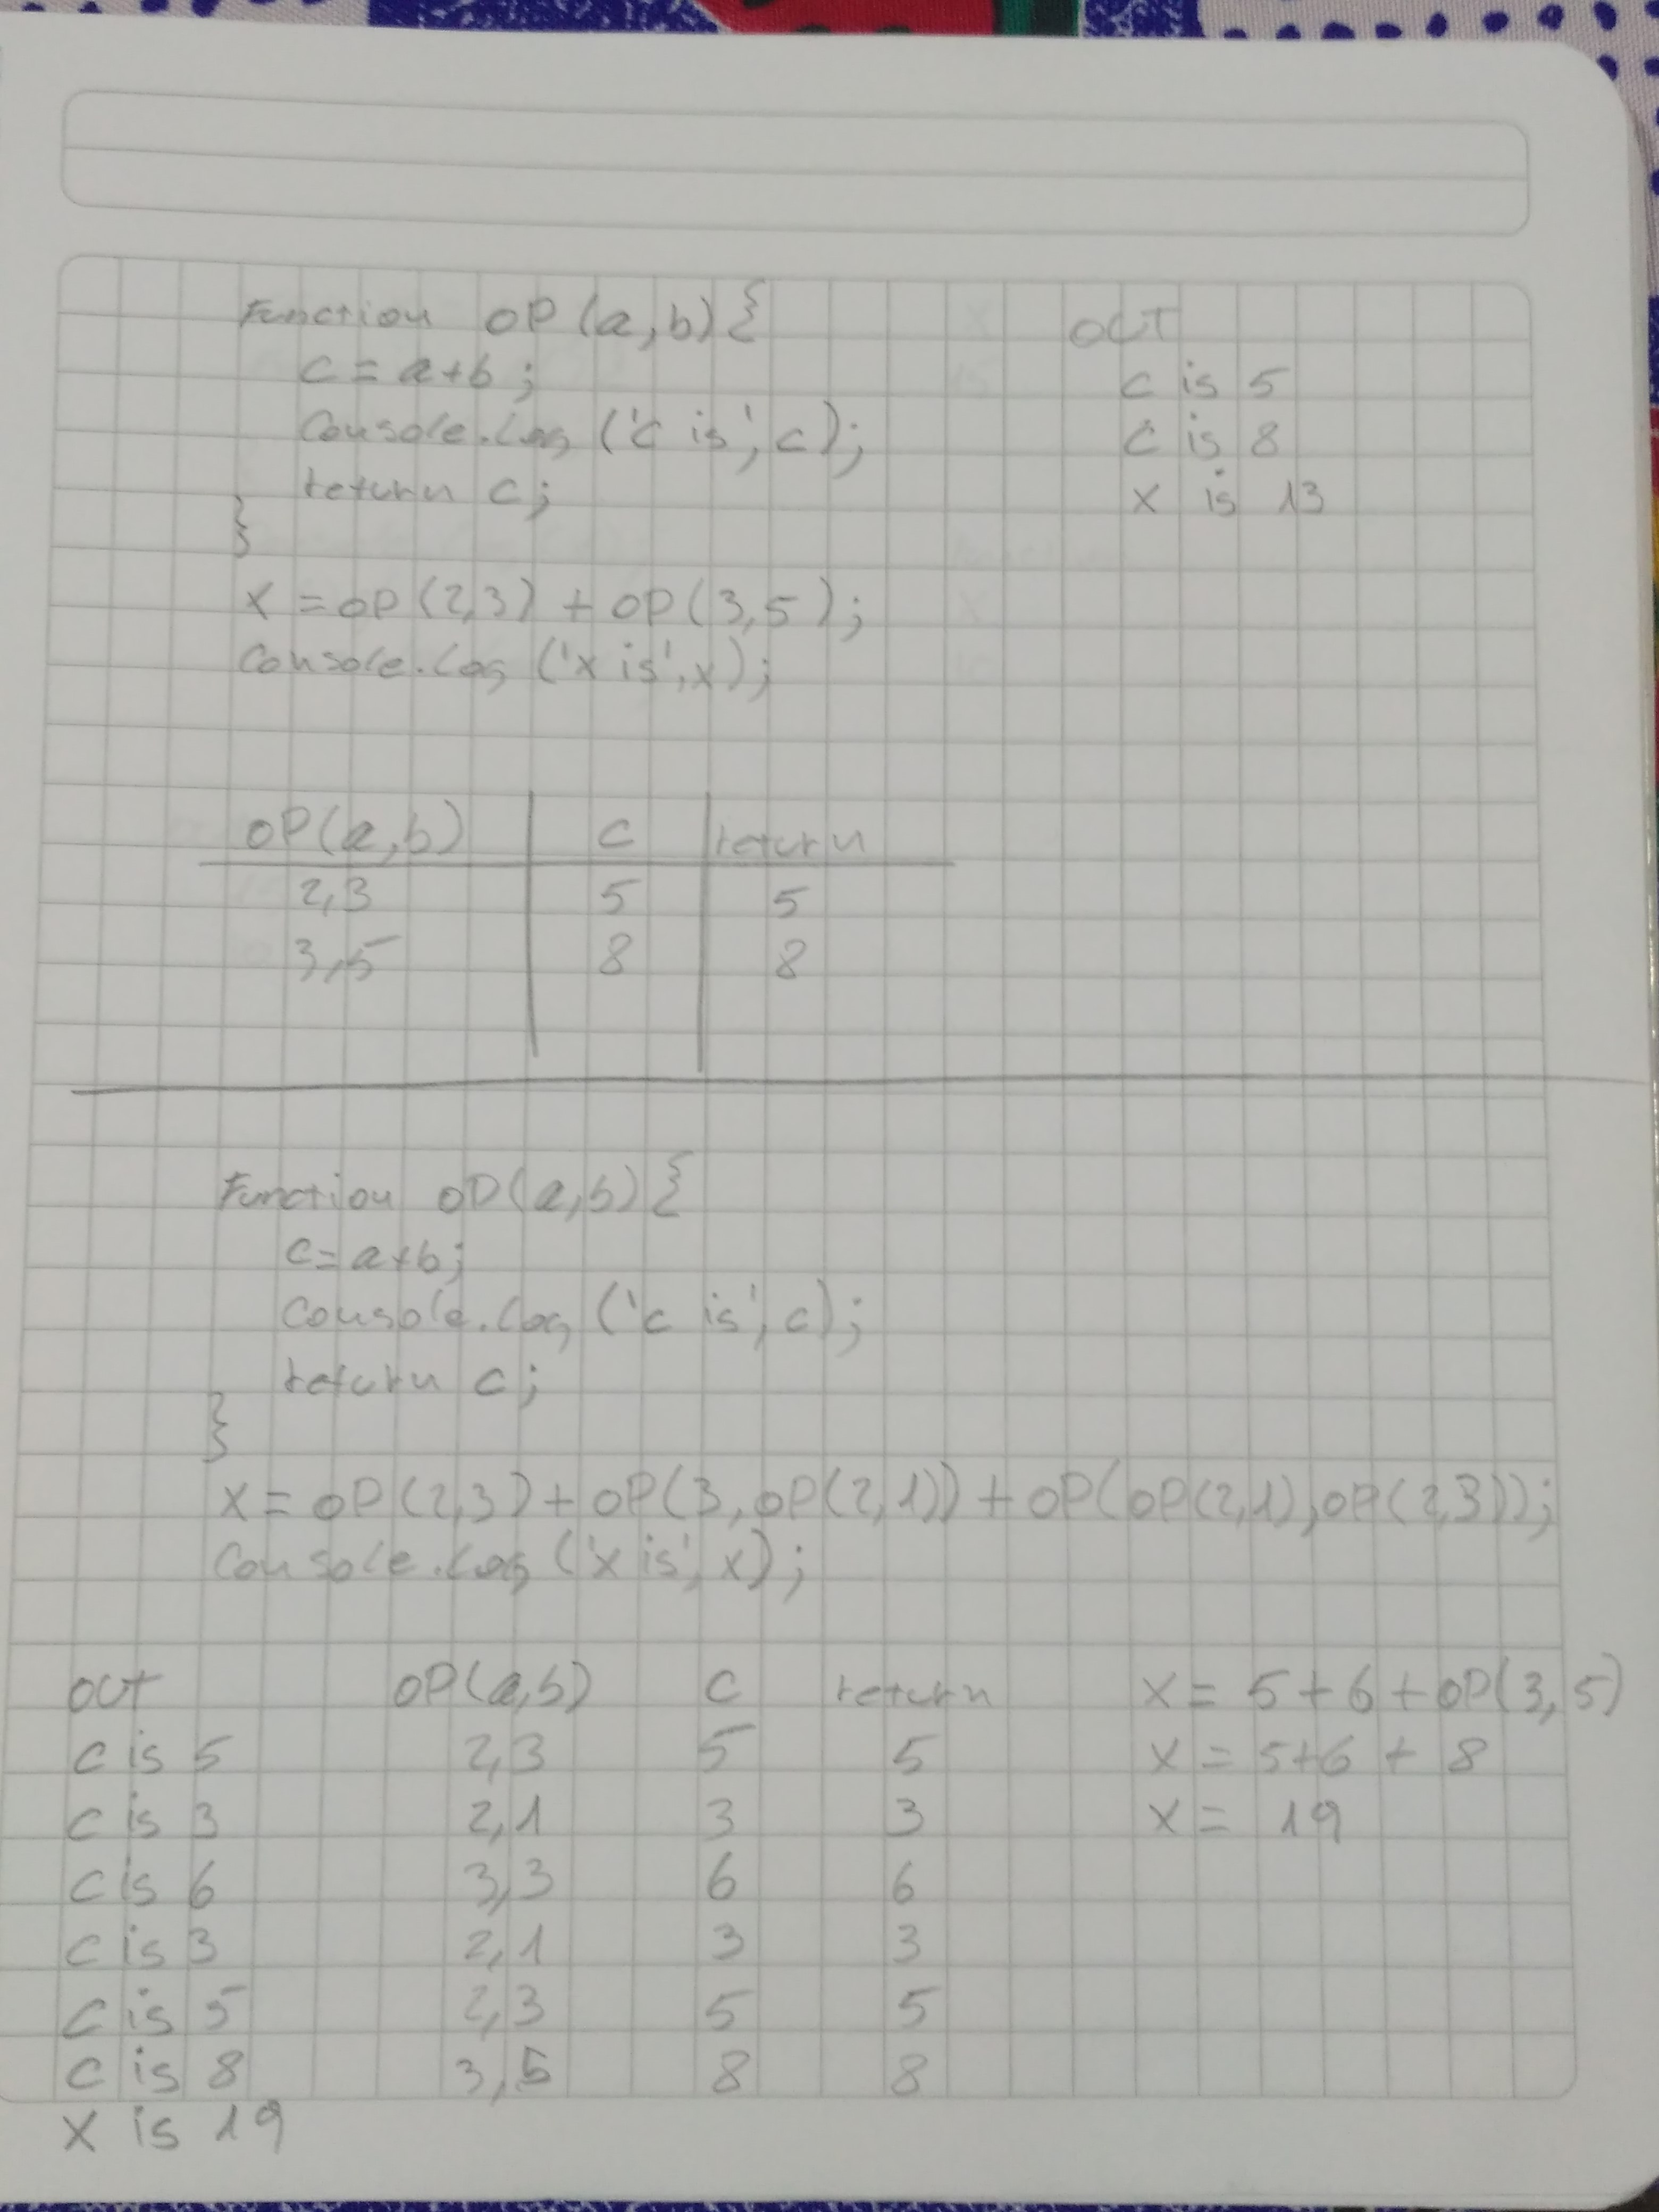 Function OP (a,b) {
c = a+b ;
Console.Log ('c is', c);
return c;
}
x = OP (2,3) + OP (3,5);
Console.Log ('x is', x);
OUT
c is 5
c is 8
x is 13
OP(a,b) c return
2,3 5 5
3,5 8 8
Function OP(a,b) {
c = a+b;
Console.Log ('c is', c);
return c;
}
x = OP(2,3) + OP(3, OP(2,1)) + OP(OP(2,1), OP(2,3));
Console.Log ('x is', x);
OUT OP(a,b) c return x = 5+6+OP(3,5)
c is 5 2,3 5 5 x = 5+6 + 8
c is 3 2,1 3 3 x = 19
c is 6 3,3 6 6
c is 3 2,1 3 3
c is 5 2,3 5 5
c is 8 3,5 8 8
x is 19